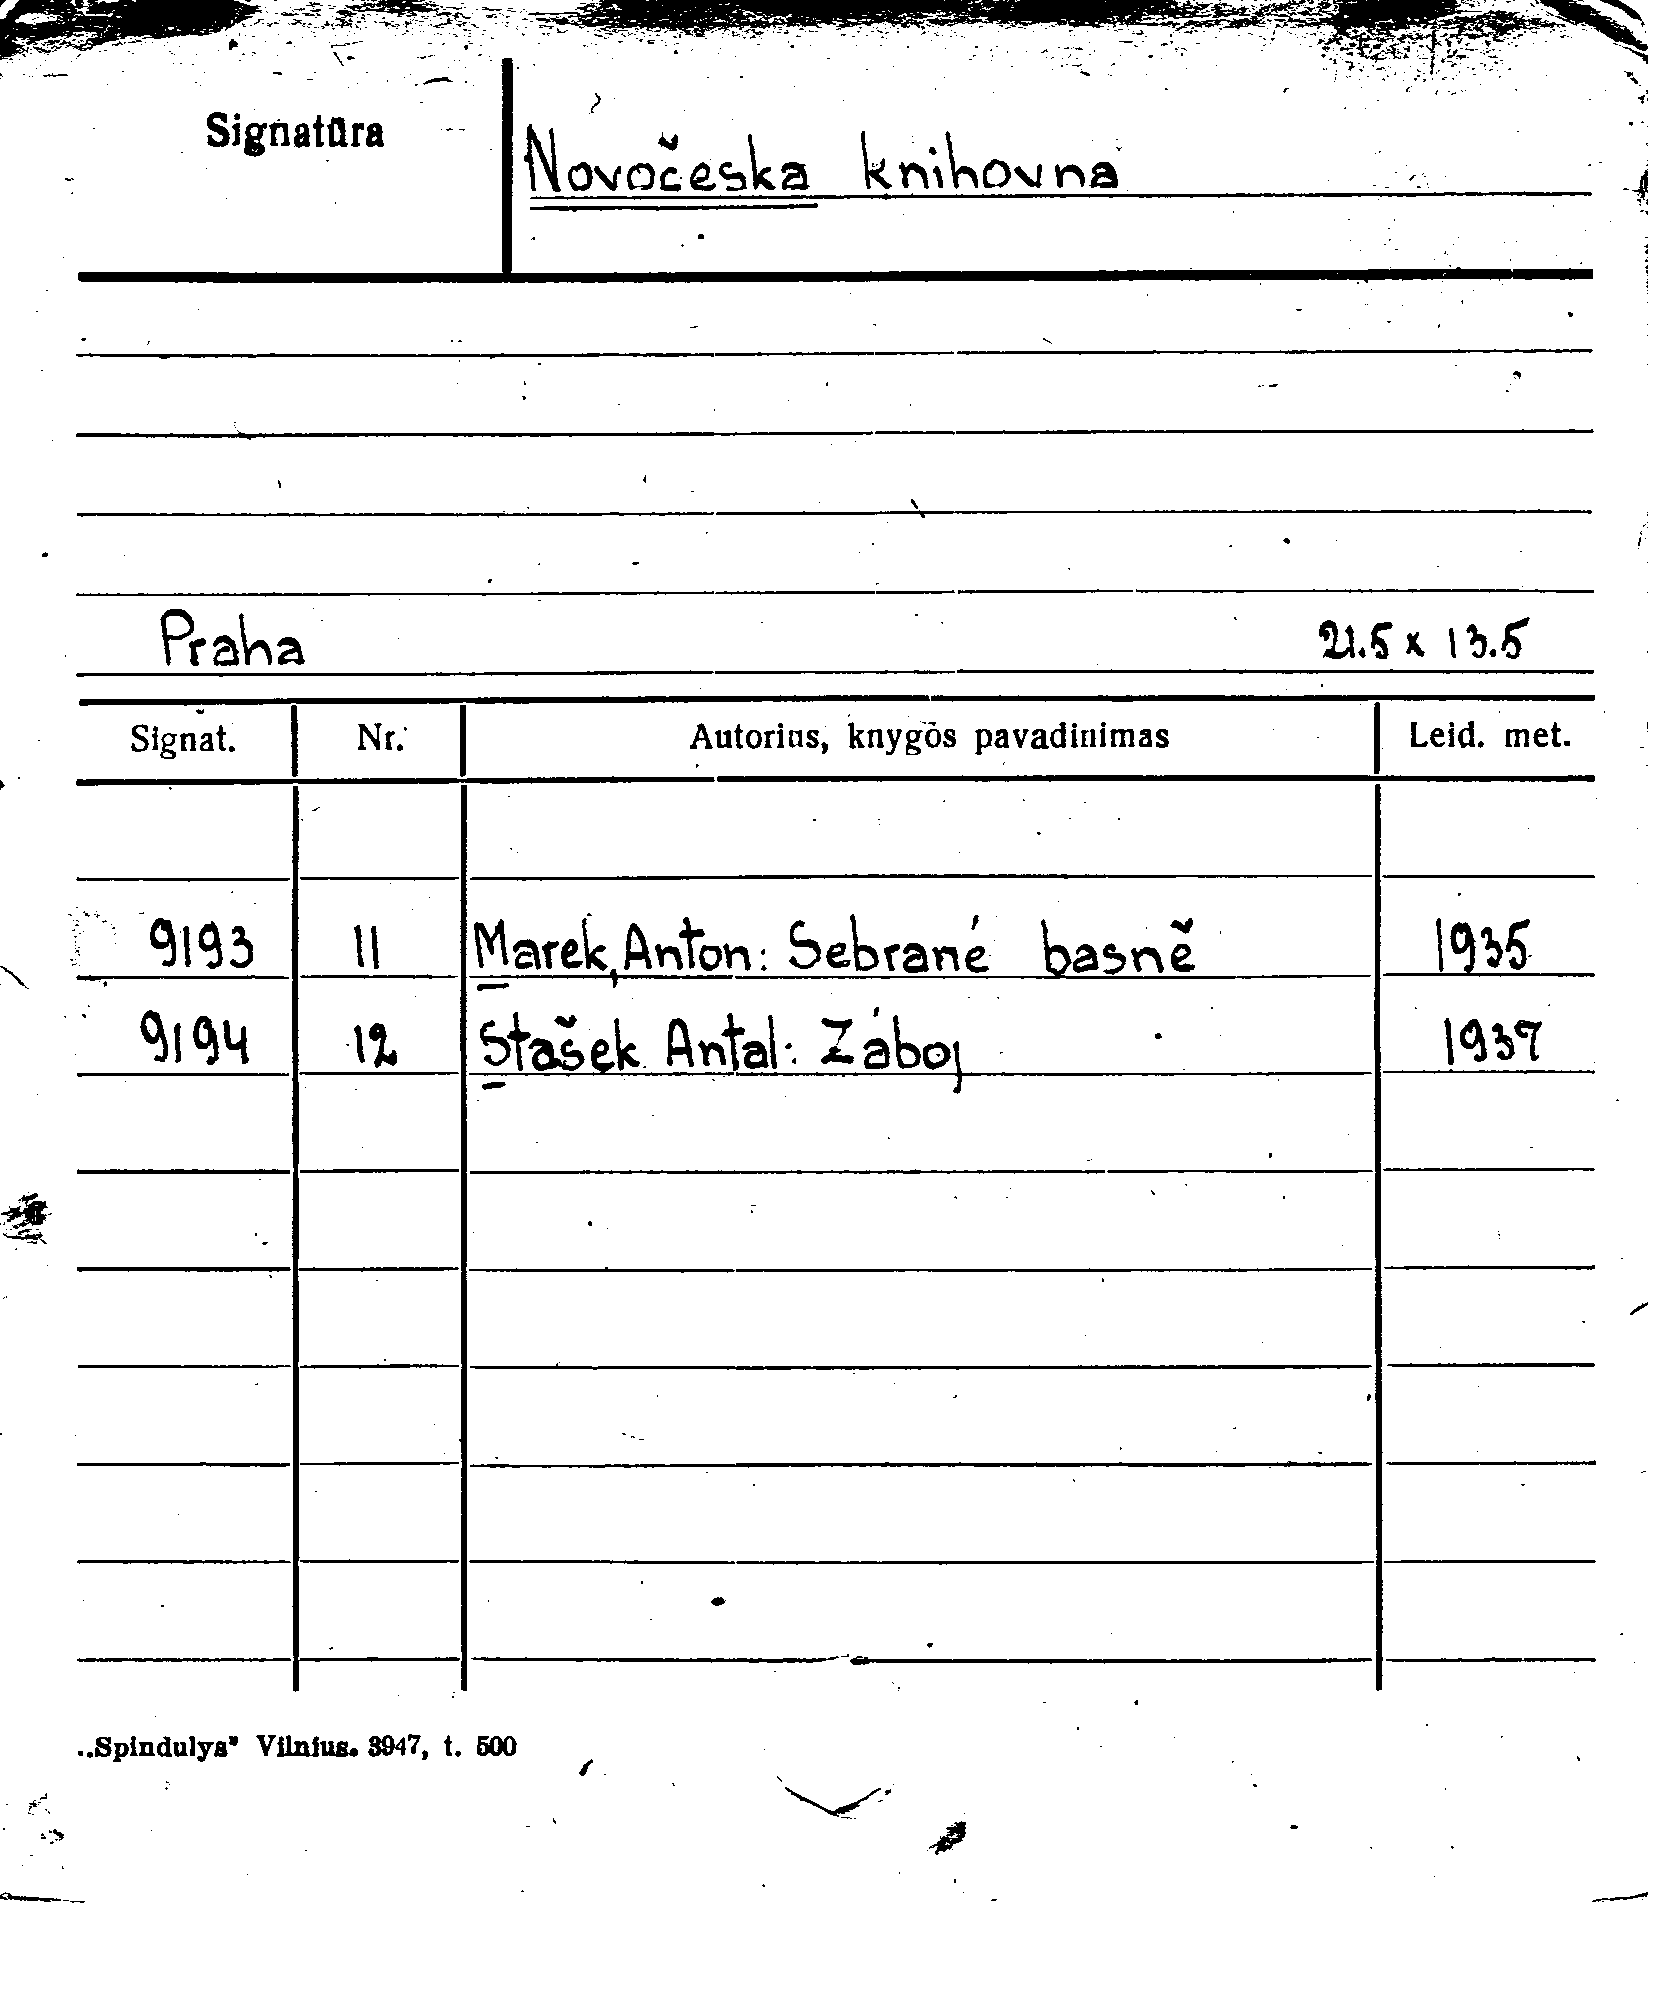 Signatūra
Novočeska knihovna
Praha 21.5 x 13.5
Signat. Nr. Autorius, knygos pavadinimas Leid. met.
9193 11 Marek, Anton: Sebrané basně 1935
9194 12 Stašek Antal: Záboj 1937
„Spindulys" Vilnius. 3947, t. 500